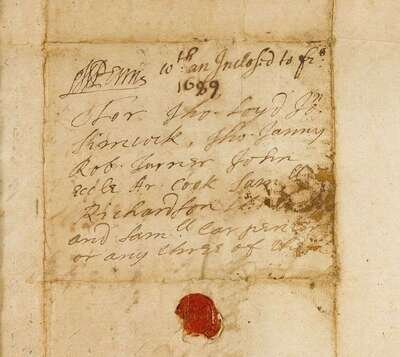 Wm Penns wth an Inclosed to frs
1689
For Tho. Loyd Jn
Simcock, Tho. Janny
Rob. Turner John
eccle Ar. Cook Sam.ll
Richardson
and Sam.ll Carpenter
or any three of